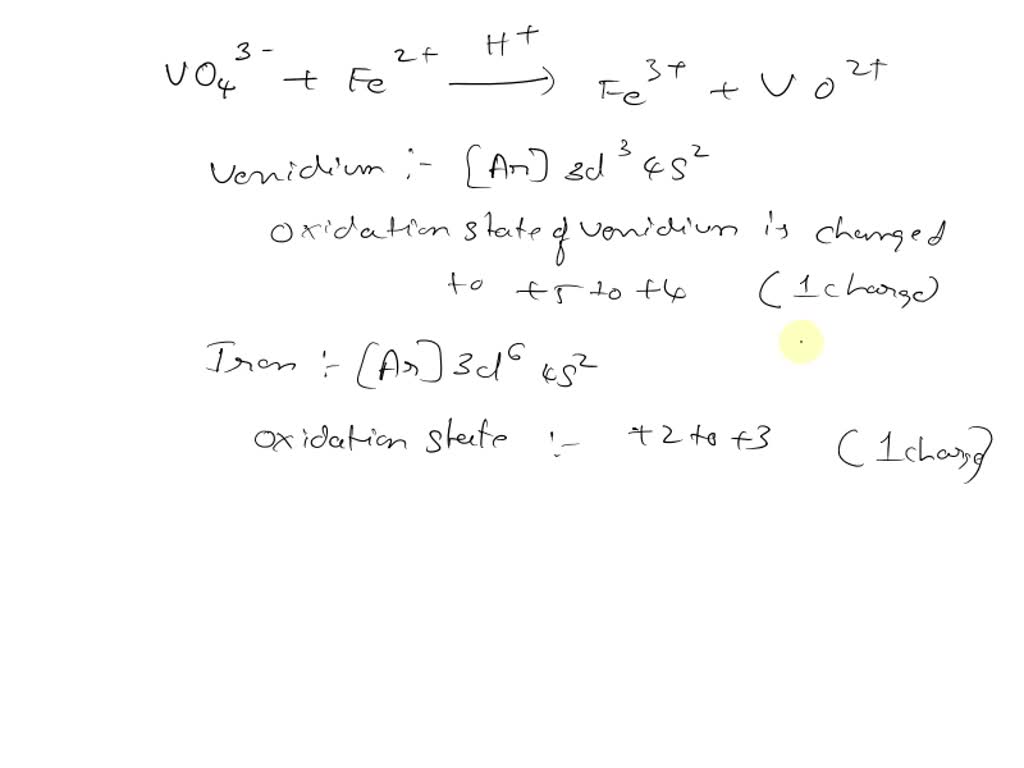 VO₄³⁻ + Fe²⁺ —H⁺→ Fe³⁺ + VO²⁺
Venidium :- [Ar] 3d³ 4s²
oxidation state of venidium is changed
to +5 to +4 (1 charge)
Iron :- [Ar] 3d⁶ 4s²
oxidation state :- +2 to +3 (1 charge)